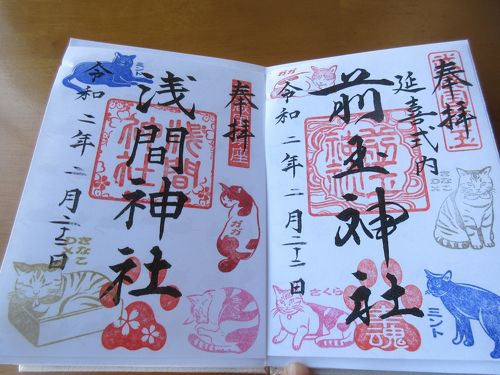 奉拝
延喜式内
前玉神社
令和二年二月二十二日
ガガ
きなこ
さくら
ミント
魂
奉拝
浅間神社
令和二年二月二十二日
ガガ
きなこ